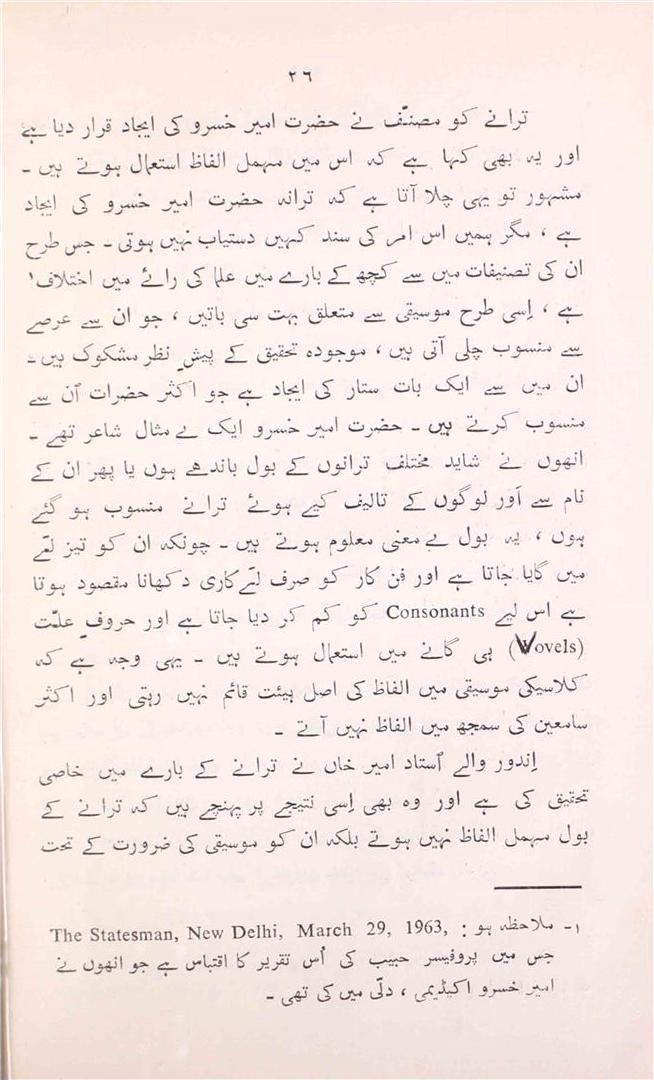 ۲٦
ترانے کو مصنّف نے حضرت امیر خسرو کی ایجاد قرار دیا ہے
اور یہ بھی کہا ہے کہ اس میں مہمل الفاظ استعمال ہوتے ہیں ۔
مشہور تو یہی چلا آتا ہے کہ ترانہ حضرت امیر خسرو کی ایجاد
ہے ، مگر ہمیں اس امر کی سند کہیں دستیاب نہیں ہوتی ۔ جس طرح
ان کی تصنیفات میں سے کچھ کے بارے میں علما کی رائے میں اختلاف۱
ہے ، اِسی طرح موسیقی سے متعلق بہت سی باتیں ، جو ان سے عرصے
سے منسوب چلی آتی ہیں ، موجودہ تحقیق کے پیشِ نظر مشکوک ہیں ۔
ان میں سے ایک بات ستار کی ایجاد ہے جو اکثر حضرات اُن سے
منسوب کرتے ہیں ۔ حضرت امیر خسرو ایک بے مثال شاعر تھے ۔
انھوں نے شاید مختلف ترانوں کے بول باندھے ہوں یا پھر ان کے
نام سے اَور لوگوں کے تالیف کیے ہوئے ترانے منسوب ہو گئے
ہوں ، یہ بول بے معنی معلوم ہوتے ہیں ۔ چونکہ ان کو تیز لَے
میں گایا جاتا ہے اور فن کار کو صرف لَے کاری دکھانا مقصود ہوتا
ہے اس لیے Consonants کو کم کر دیا جاتا ہے اور حروفِ علّت
(Vovels) ہی گانے میں استعمال ہوتے ہیں ۔ یہی وجہ ہے کہ
کلاسیکی موسیقی میں الفاظ کی اصل ہیئت قائم نہیں رہتی اور اکثر
سامعین کی سمجھ میں الفاظ نہیں آتے ۔
اِندور والے اُستاد امیر خاں نے ترانے کے بارے میں خاصی
تحقیق کی ہے اور وہ بھی اِسی نتیجے پر پہنچے ہیں کہ ترانے کے
بول مہمل الفاظ نہیں ہوتے بلکہ ان کو موسیقی کی ضرورت کے تحت
۱۔ ملاحظہ ہو : The Statesman, New Delhi, March 29, 1963,
جس میں پروفیسر حبیب کی اُس تقریر کا اقتباس ہے جو انھوں نے
امیر خسرو اکیڈیمی ، دلّی میں کی تھی ۔